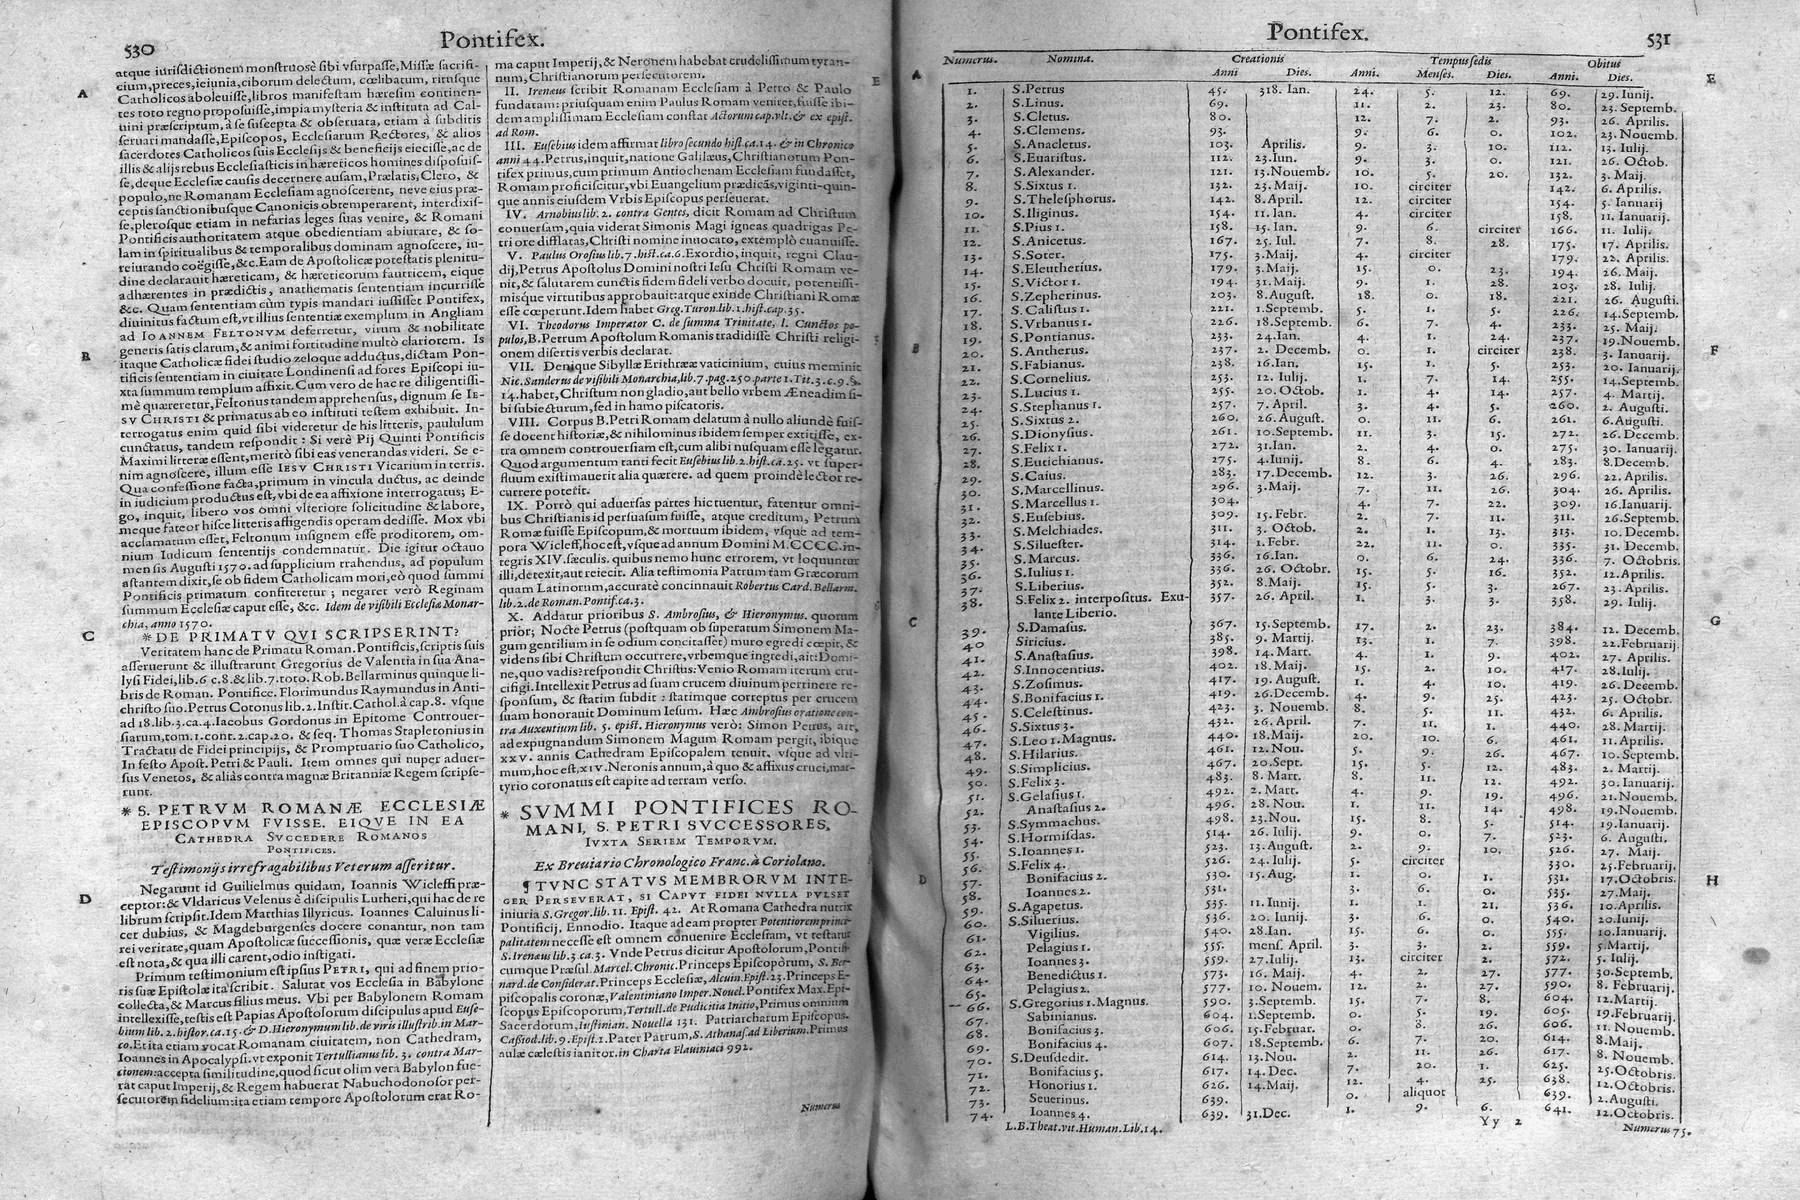 530
Pontifex.
atque iurisdictionem monstruosè sibi vsurpasse, Missæ sacrifi-
cium, preces, ieiunia, ciborum delectum, cœlibatum, ritusque
Catholicos aboleuisse, libros manifestam hæresim continen-
tes toto regno proposuisse, impia mysteria & instituta ad Cal-
uini præscriptum, à se suscepta & obseruata, etiam à subditis
seruari mandasse, Episcopos, Ecclesiarum Rectores, & alios
sacerdotes Catholicos suis Ecclesijs & beneficijs eiecisse, ac de
illis & alijs rebus Ecclesiasticis in hæreticos homines disposuis-
se, deque Ecclesiæ causis decernere ausam, Prælatis, Clero, &
populo, ne Romanam Ecclesiam agnoscerent, neve eius præ-
ceptis sanctionibusque Canonicis obtemperarent, interdixis-
se, plerosque etiam in nefarias leges suas venire, & Romani
Pontificis authoritatem atque obedientiam abiurare, & so-
lam in spiritualibus & temporalibus dominam agnoscere, iu-
reiurando coëgisse, &c. Eam de Apostolicæ potestatis plenitu-
dine declarauit hæreticam, & hæreticorum fautricem, eique
adhærentes in prædictis, anathematis sententiam incurrisse
&c. Quam sententiam cùm typis mandari iussisset Pontifex,
diuinitus factum est, vt illius sententiæ exemplum in Angliam
ad IOANNEM FELTONVM deferretur, virum & nobilitate
generis satis clarum, & animi fortitudine multò clariorem. Is
itaque Catholicæ fidei studio zeloque adductus, dictam Pon-
tificis sententiam in ciuitate Londinensi ad fores Episcopi iu-
xta summum templum affixit. Cum vero de hac re diligentissi-
mè quæreretur, Feltonus tandem apprehensus, dignum se IE-
SV CHRISTI & primatus ab eo instituti testem exhibuit. In-
terrogatus enim quid sibi videretur de his litteris, paululum
cunctatus, tandem respondit: Si verè Pij Quinti Pontificis
Maximi litteræ essent, meritò sibi eas venerandas videri. Se e-
nim agnoscere, illum esse IESV CHRISTI Vicarium in terris.
Qua confessione facta, primum in vincula ductus, ac deinde
in iudicium productus est, vbi de ea affixione interrogatus; E-
go, inquit, libero vos omni vlteriore solicitudine & labore,
meque fateor hisce litteris affigendis operam dedisse. Mox vbi
acclamatum esset, Feltonum insignem esse proditorem, om-
nium Iudicum sententijs condemnatur. Die igitur octauo
mensis Augusti 1570. ad supplicium trahendus, ad populum
astantem dixit, se ob fidem Catholicam mori, eò quod summi
Pontificis primatum confiteretur; negaret verò Reginam
summum Ecclesiæ caput esse, &c. Idem de visibili Ecclesiæ Monar-
chia, anno 1570.
* DE PRIMATV QVI SCRIPSERINT?
Veritatem hanc de Primatu Roman. Pontificis, scriptis suis
asseruerunt & illustrarunt Gregorius de Valentia in sua Ana-
lysi Fidei, lib. 6 c. 8. & lib. 7. toto. Rob. Bellarminus quinque li-
bris de Roman. Pontifice. Florimundus Raymundus in Anti-
christo suo. Petrus Cotonus lib. 2. Instit. Cathol. à cap. 8. vsque
ad 18. lib. 3. ca. 4. Iacobus Gordonus in Epitome Controuer-
siarum, tom. 1. cont. 2. cap. 20. & seq. Thomas Stapletonius in
Tractatu de Fidei principijs, & Promptuario suo Catholico,
In festo Apost. Petri & Pauli. Item omnes qui nuper aduer-
sus Venetos, & aliàs contra magnæ Britanniæ Regem scripse-
runt.
* S. PETRVM ROMANÆ ECCLESIÆ
EPISCOPVM FVISSE, EIQVE IN EA
CATHEDRA SVCCEDERE ROMANOS
PONTIFICES.
Testimonijs irrefragabilibus Veterum asseritur.
Negarunt id Guilielmus quidam, Ioannis Wicleffi præ-
ceptor: & Vldaricus Velenus è discipulis Lutheri, qui hac de re
librum scripsit. Idem Matthias Illyricus. Ioannes Caluinus li-
cet dubius, & Magdeburgenses docere conantur, non tam
rei veritate, quam Apostolicæ successionis, quæ veræ Ecclesiæ
est nota, & qua illi carent, odio instigati.
Primum testimonium est ipsius PETRI, qui ad finem prio-
ris suæ Epistolæ ita scribit. Salutat vos Ecclesia in Babylone
collecta, & Marcus filius meus. Vbi per Babylonem Romam
intellexisse, testis est Papias Apostolorum discipulus apud Euse-
bium lib. 2. histor. ca. 15. & D. Hieronymum lib. de viris illustrib. in Mar-
co. Et ita etiam vocat Romanam ciuitatem, non Cathedram,
Ioannes in Apocalypsi. vt exponit Tertullianus lib. 3. contra Mar-
cionem: accepta similitudine, quod sicut olim vera Babylon fue-
rat caput Imperij, & Regem habuerat Nabuchodonosor per-
secutorem fidelium: ita etiam tempore Apostolorum erat Ro-
A
B
C
D
ma caput Imperij, & Neronem habebat crudelissimum tyran-
num, Christianorum persecutorem.
II. Irenæus scribit Romanam Ecclesiam à Petro & Paulo
fundatam: priusquam enim Paulus Romam veniret, fuisse ibi-
dem amplissimam Ecclesiam constat Actorum cap. vlt. & ex epist.
ad Rom.
III. Eusebius idem affirmat libro secundo hist. ca. 14. & in Chronico
anni 44. Petrus, inquit, natione Galilæus, Christianorum Pon-
tifex primus, cum primum Antiochenam Ecclesiam fundasset,
Romam proficiscitur, vbi Euangelium prædicãs, viginti-quin-
que annis eiusdem Vrbis Episcopus perseuerat.
IV. Arnobius lib. 2. contra Gentes, dicit Romam ad Christum
conuersam, quia viderat Simonis Magi igneas quadrigas Pe-
tri ore difflatas, Christi nomine inuocato, extemplò euanuisse.
V. Paulus Orosius lib. 7. hist. ca. 6. Exordio, inquit, regni Clau-
dij, Petrus Apostolus Domini nostri Iesu Christi Romam ve-
nit, & salutarem cunctis fidem fideli verbo docuit, potentissi-
misque virtutibus approbauit: atque exinde Christiani Romæ
esse cœperunt. Idem habet Greg. Turon. lib. 1. hist. cap. 35.
VI. Theodorus Imperator C. de summa Trinitate, l. Cunctos po-
pulos, B. Petrum Apostolum Romanis tradidisse Christi religi-
onem disertis verbis declarat.
VII. Denique Sibyllæ Erithrææ vaticinium, cuius meminit
Nic. Sanderus de visibili Monarchia, lib. 7. pag. 250. parte 1. Tit. 3. c. 9. §.
14. habet, Christum non gladio, aut bello vrbem Æneadim si-
bi subiecturum, sed in hamo piscatoris.
VIII. Corpus B. Petri Romam delatum à nullo aliundè fuis-
se docent historiæ, & nihilominus ibidem semper extitisse, ex-
tra omnem controuersiam est, cum alibi nusquam esse legatur.
Quod argumentum tanti fecit Eusebius lib. 2. hist. ca. 25. vt super-
fluum existimauerit alia quærere. ad quem proindè lector re-
currere poterit.
IX. Porrò qui aduersas partes hic tuentur, fatentur omni-
bus Christianis id persuasum fuisse, atque creditum, Petrum
Romæ fuisse Episcopum, & mortuum ibidem, vsque ad tem-
pora Wicleff, hoc est, vsque ad annum Domini M.CCCC. in-
tegris XIV. sæculis. quibus nemo hunc errorem, vt loquuntur
illi, detexit, aut reiecit. Alia testimonia Patrum tam Græcorum
quam Latinorum, accuratè concinnauit Robertus Card. Bellarm.
lib. 2. de Roman. Pontif. ca. 3.
X. Addatur prioribus S. Ambrosius, & Hieronymus. quorum
prior; Nocte Petrus (postquam ob superatum Simonem Ma-
gum gentilium in se odium concitasset) muro egredi cœpit, &
videns sibi Christum occurrere, vrbemque ingredi, ait: Domi-
ne, quo vadis? respondit Christus: Venio Romam iterum cru-
cifigi. Intellexit Petrus ad suam crucem diuinum pertinere re-
sponsum, & statim subdit: statimque correptus per crucem
suam honorauit Dominum Iesum. Hæc Ambrosius oratione con-
tra Auxentium lib. 5. epist. Hieronymus verò: Simon Petrus, ait,
ad expugnandum Simonem Magum Romam pergit, ibique
XXV. annis Cathedram Episcopalem tenuit. vsque ad vlti-
mum, hoc est, XIV. Neronis annum, à quo & affixus cruci, mar-
tyrio coronatus est capite ad terram verso.
* SVMMI PONTIFICES RO-
MANI, S. PETRI SVCCESSORES,
IVXTA SERIEM TEMPORVM.
Ex Breuiario Chronologico Franc. à Coriolano.
¶ TVNC STATVS MEMBRORVM INTE-
GER PERSEVERAT, SI CAPVT FIDEI NVLLA PVLSET
iniuria S. Gregor. lib. 11. Epist. 42. At Romana Cathedra nutrix
Pontificij, Ennodio. Itaque ad eam propter Potentiorem princi-
palitatem necesse est omnem conuenire Ecclesiam, vt testatur
S. Irenæus lib. 3 ca. 3. Vnde Petrus dicitur Apostolorum, Pontifi-
cumque Præsul. Marcel. Chronic. Princeps Episcoporum, S. Ber-
nard. de Considerat. Princeps Ecclesiæ, Alcuin. Epist. 23. Princeps E-
piscopalis coronæ, Valentiniano Imper. Nouel. Pontifex Max. Epi-
scopus Episcoporum, Tertull. de Pudicitia Initio, Primus omnium
Sacerdotum, Iustinian. Nouella 131. Patriarcharum Episcopus.
Cassiod. lib. 9. Epist. 1. Pater Patrum, S. Athanas. ad Liberium. Primus
aulæ cælestis ianitor. in Charta Flauiniaci 992.
Numerus
E
Pontifex.
531
Numerus. Nomina. Creationis Tempus sedis Obitus
Anni Dies. Anni. Menses. Dies. Anni. Dies.
1. S. Petrus 45. 318. Ian. 24. 5. 12. 69. 29. Iunij.
2. S. Linus. 69. 11. 2. 23. 80. 23. Septemb.
3. S. Cletus. 80. 12. 7. 2. 93. 26. Aprilis.
4. S. Clemens. 93. 9. 6. 0. 102. 23. Nouemb.
5. S. Anacletus. 103. Aprilis. 9. 3. 10. 112. 13. Iulij.
6. S. Euaristus. 112. 23. Iun. 9. 3. 0. 121. 26. Octob.
7. S. Alexander. 121. 13. Nouemb. 10. 5. 20. 132. 3. Maij.
8. S. Sixtus 1. 132. 23. Maij. 10. circiter 142. 6. Aprilis.
9. S. Thelesphorus. 142. 8. April. 12. circiter 154. 5. Ianuarij
10. S. Iliginus. 154. 11. Ian. 4. circiter 158. 11. Ianuarij.
11. S. Pius 1. 158. 15. Ian. 9. 6. circiter 166. 11. Iulij.
12. S. Anicetus. 167. 25. Iul. 7. 8. 28. 175. 17. Aprilis.
13. S. Soter. 175. 3. Maij. 4. circiter 179. 22. Aprilis.
14. S. Eleutherius. 179. 3. Maij. 15. 0. 23. 194. 26. Maij.
15. S. Victor 1. 194. 31. Maij. 9. 1. 28. 203. 28. Iunij.
16. S. Zepherinus. 203. 8. August. 18. 0. 18. 221. 26. Augusti.
17. S. Calistus 1. 221. 1. Septemb. 5. 1. 5. 226. 14. Septemb.
18. S. Vrbanus 1. 226. 18. Septemb. 6. 7. 4. 233. 25. Maij.
19. S. Pontianus. 233. 24. Ian. 4. 1. 24. 237. 19. Nouemb.
20. S. Antherus. 237. 2. Decemb. 0. 1. circiter 238. 3. Ianuarij.
21. S. Fabianus. 238. 16. Ian. 15. 1. 5. 253. 20. Ianuarij.
22. S. Cornelius. 253. 12. Iulij. 1. 7. 14. 255. 14. Septemb.
23. S. Lucius 1. 255. 20. Octob. 1. 4. 14. 257. 4. Martij.
24. S. Stephanus 1. 257. 7. April. 3. 4. 5. 260. 2. Augusti.
25. S. Sixtus 2. 260. 26. August. 0. 11. 6. 261. 6. Augusti.
26. S. Dionysius. 261. 10. Septemb. 11. 3. 15. 272. 26. Decemb.
27. S. Felix 1. 272. 31. Ian. 2. 4. 0. 275. 30. Ianuarij.
28. S. Eutichianus. 275. 4. Iunij. 8. 6. 4. 283. 8. Decemb.
29. S. Caius. 283. 17. Decemb. 12. 3. 26. 296. 22. Aprilis.
30. S. Marcellinus. 296. 3. Maij. 7. 11. 26. 304. 26. Aprilis.
31. S. Marcellus 1. 304. 4. 7. 22. 309. 16. Ianuarij.
32. S. Eusebius. 309. 15. Febr. 2. 7. 11. 311. 26. Septemb.
33. S. Melchiades. 311. 3. Octob. 2. 1. 13. 313. 10. Decemb.
34. S. Siluester. 314. 1. Febr. 22. 11. 0. 335. 31. Decemb.
35. S. Marcus. 336. 16. Ian. 0. 6. 24. 336. 7. Octobris.
36. S. Iulius 1. 336. 26. Octobr. 15. 5. 16. 352. 12. Aprilis.
37. S. Liberius. 352. 8. Maij. 15. 5. 3. 267. 23. Aprilis.
38. S. Felix 2. interpositus. Exu- 357. 26. April. 1. 3. 3. 358. 29. Iulij.
lante Liberio.
39. S. Damasus. 367. 15. Septemb. 17. 2. 23. 384. 12. Decemb.
40 Siricius. 385. 9. Martij. 13. 1. 7. 398. 22. Februarij.
41. S. Anastasius. 398. 14. Mart. 4. 1. 9. 402. 27. Aprilis.
42. S. Innocentius. 402. 18. Maij. 15. 2. 10. 417. 28. Iulij.
43. S. Zosimus. 417. 19. August. 1. 4. 10. 419. 26. Decemb.
44. S. Bonifacius 1. 419. 26. Decemb. 4. 9. 25. 423. 25. Octobr.
45. S. Celestinus. 423. 3. Nouemb. 8. 5. 11. 432. 6. Aprilis.
46. S. Sixtus 3. 432. 26. April. 7. 11. 1. 440. 28. Martij.
47. S. Leo 1. Magnus. 440. 18. Maij. 20. 10. 6. 461. 11. Aprilis.
48. S. Hilarius. 461. 12. Nou. 5. 9. 26. 467. 10. Septemb.
49. S. Simplicius. 467. 20. Sept. 15. 5. 12. 483. 2. Martij.
50. S. Felix 3. 483. 8. Mart. 8. 11. 12. 492. 30. Ianuarij.
51. S. Gelasius 1. 492. 2. Mart. 4. 9. 19. 496. 21. Nouemb.
52. Anastasius 2. 496. 28. Nou. 1. 11. 14. 498. 19. Nouemb.
53. S. Symmachus. 498. 23. Nou. 15. 8. 5. 514. 19. Ianuarij.
54. S. Hormisdas. 514. 26. Iulij. 9. 0. 7. 523. 6. Augusti.
55. S. Ioannes 1. 523. 13. August. 2. 9. 10. 526. 27. Maij.
56. S. Felix 4. 526. 24. Iulij. 5. circiter 530. 25. Februarij.
57. Bonifacius 2. 530. 15. Aug. 1. 0. 1. 531. 17. Octobris.
58. Ioannes 2. 531. 3. 6. 0. 535. 27. Maij.
59. S. Agapetus. 535. 11. Iunij. 1. 1. 21. 536. 10. Aprilis.
60. S. Siluerius. 536. 20. Iunij. 3. 6. 0. 540. 20. Iunij.
61. Vigilius. 540. 28. Ian. 15. 6. 0. 555. 10. Ianuarij.
62. Pelagius 1. 555. mens. April. 3. 3. 2. 559. 5. Martij.
63. Ioannes 3. 559. 27. Iulij. 13. circiter 2. 572. 5. Iulij.
64. Benedictus 1. 573. 16. Maij. 4. 2. 27. 577. 30. Septemb.
65. Pelagius 2. 577. 10. Nouem. 12. 2. 27. 590. 8. Februarij.
66. S. Gregorius 1. Magnus. 590. 3. Septemb. 15. 7. 8. 604. 12. Martij.
67. Sabinianus. 604. 1. Septemb. 0. 5. 19. 605. 19. Februarij.
68. Bonifacius 3. 606. 15. Februar. 0. 8. 26. 606. 11. Nouemb.
69. Bonifacius 4. 607. 18. Septemb. 6. 7. 20. 614. 8. Maij.
70. S. Deusdedit. 614. 13. Nou. 2. 11. 26. 617. 8. Nouemb.
71. Bonifacius 5. 617. 14. Dec. 7. 20. 1. 625. 25. Octobris.
72. Honorius 1. 626. 14. Maij. 12. 4. 25. 638. 12. Octobris.
73. Seuerinus. 639. 0. aliquot 639. 2. Augusti.
74. Ioannes 4. 639. 31. Dec. 1. 9. 6. 641. 12. Octobris.
L. B. Theat. vit. Human. Lib. 14. Yy 2 Numerus 75.
A
B
C
D
E
F
G
H